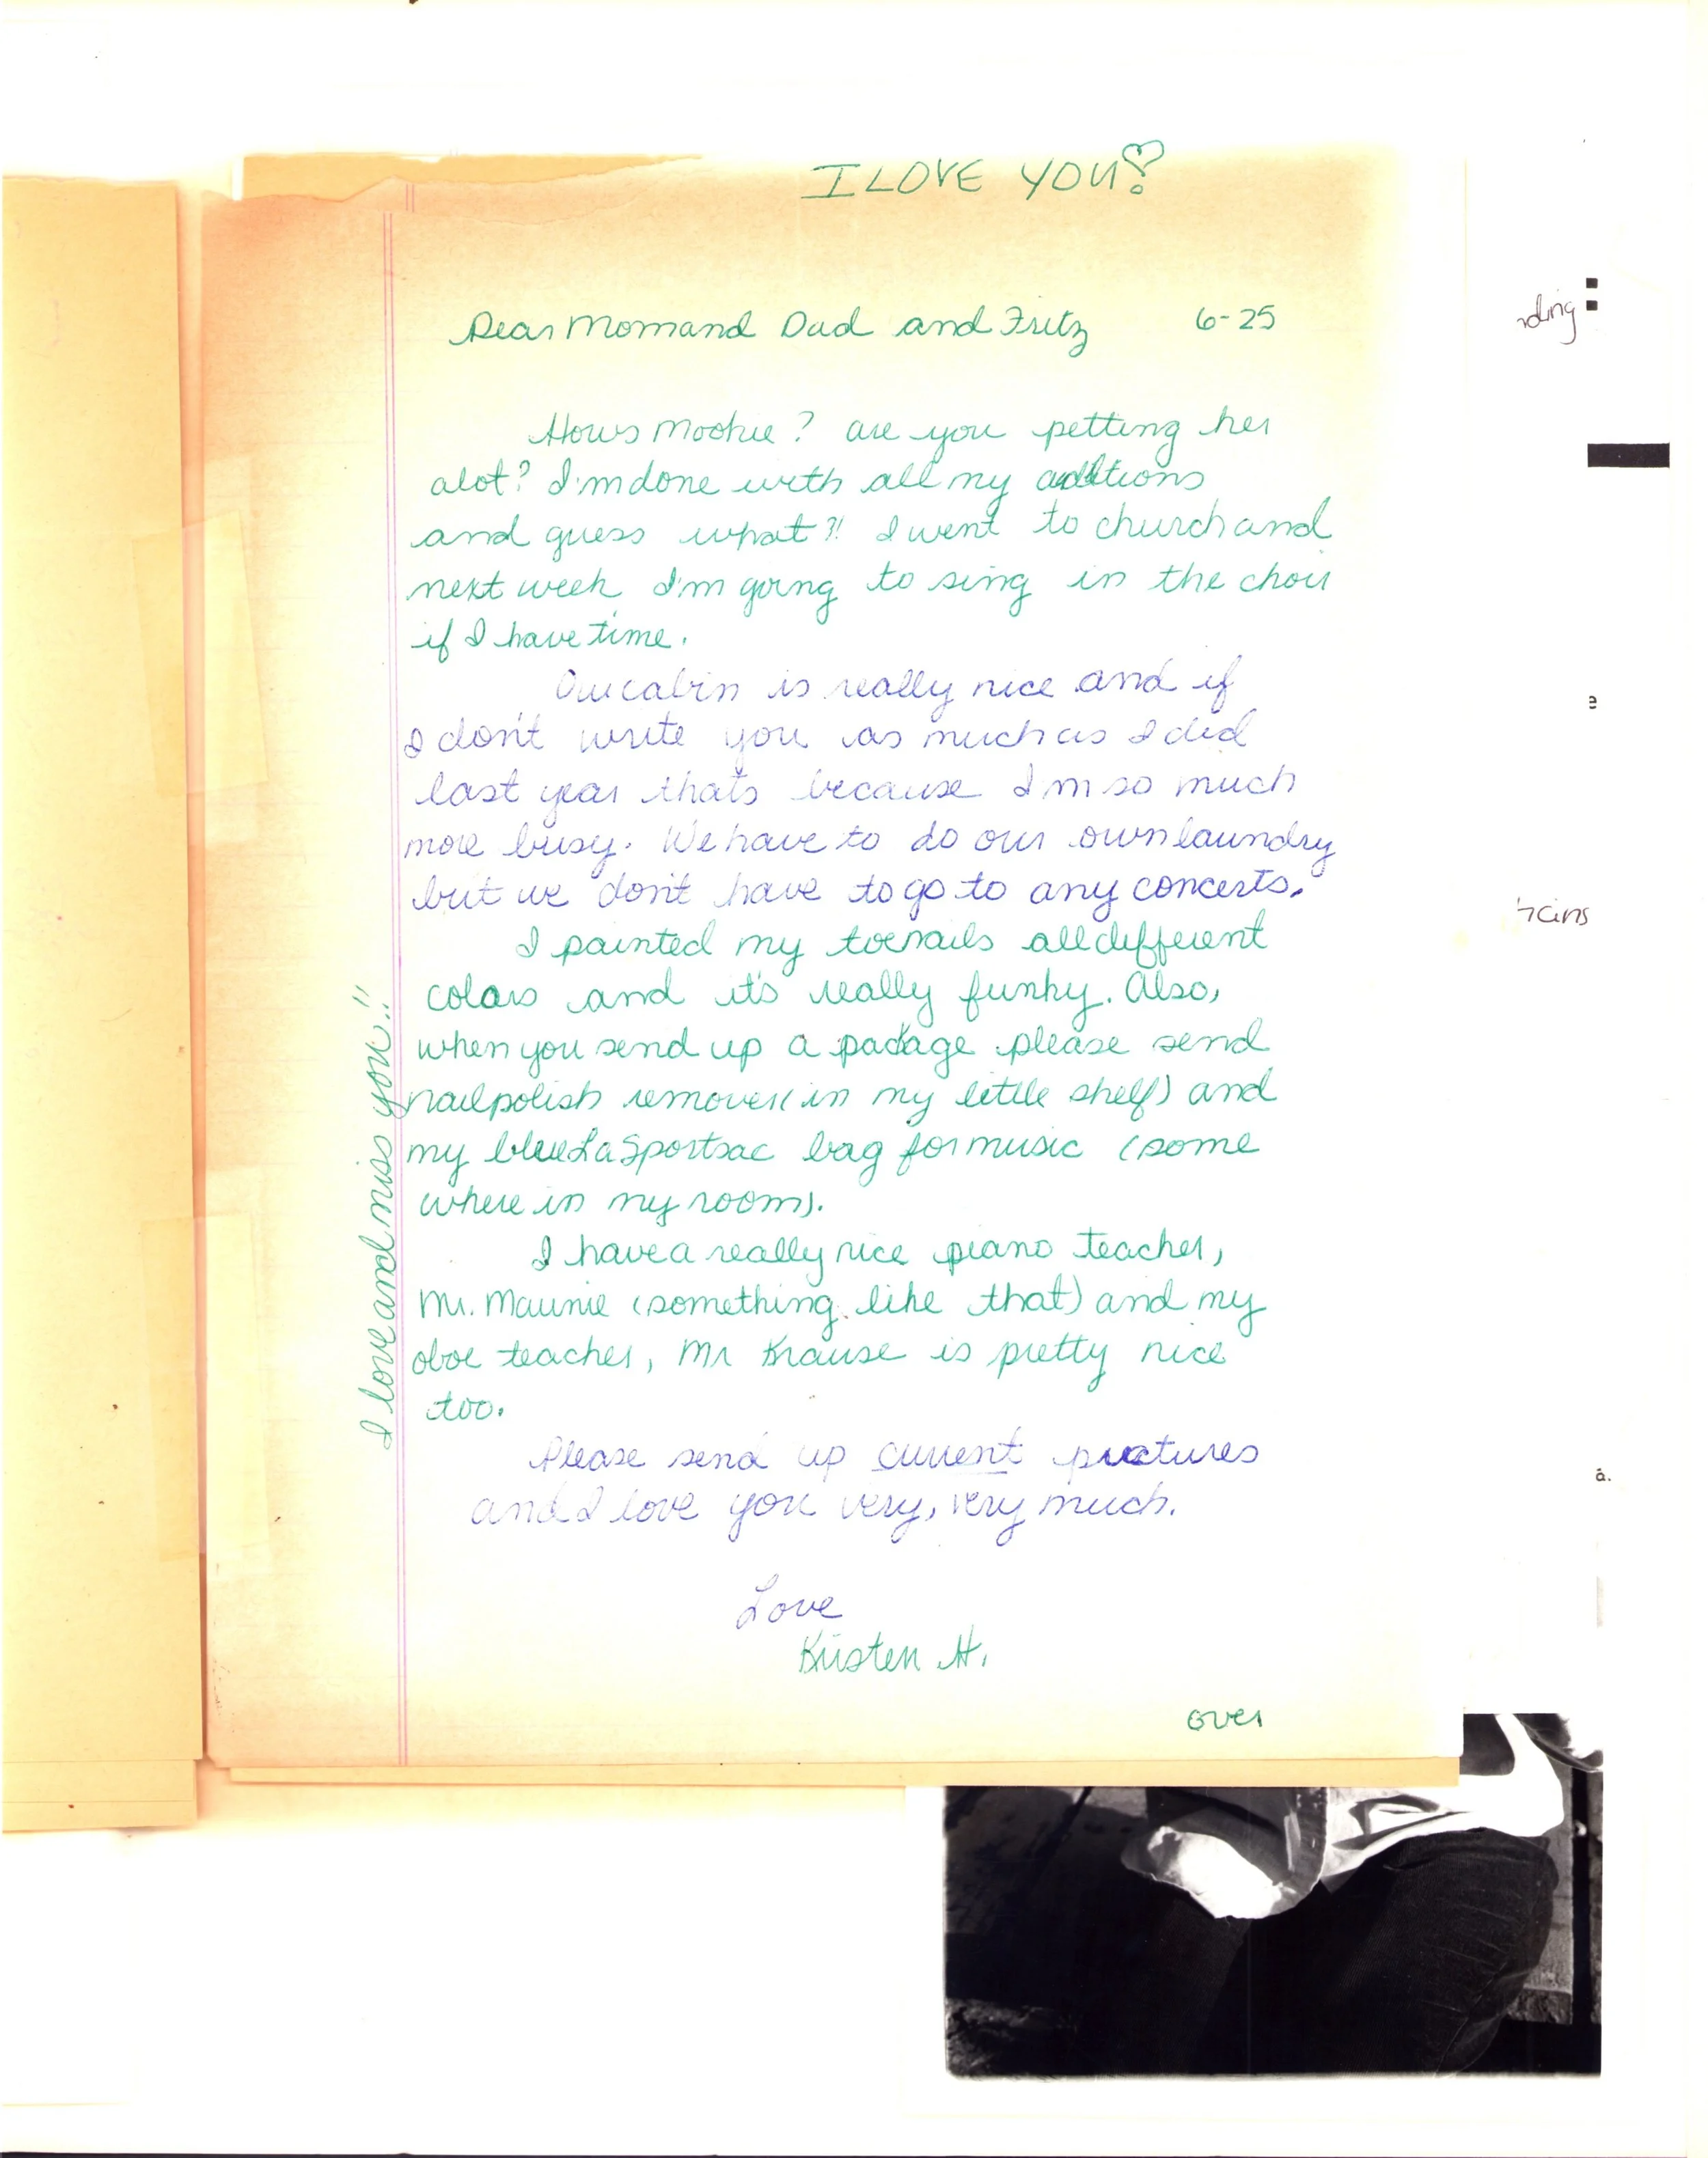 I LOVE YOU!
Dear Mom and Dad and Fritz 6-25
Hows Mookie? are you petting her
alot? I'm done with all my auditions
and guess what?! I went to church and
next week I'm going to sing in the choir
if I have time.
Our cabin is really nice and if
I don't write you as much as I did
last year thats because I'm so much
more busy. We have to do our own laundry
but we don't have to go to any concerts.
I painted my toenails all different
colors and it's really funky. Also,
when you send up a package please send
nailpolish remover (in my little shelf) and
my blue La Sportsac bag for music (some
where in my room).
I have a really nice piano teacher,
Mr. Maunie (something like that) and my
oboe teacher, Mr Krause is pretty nice
too.
Please send up current pictures
and I love you very, very much.
Love
Kristen H.
over
I love and miss you!!
ding
e
cins
a.